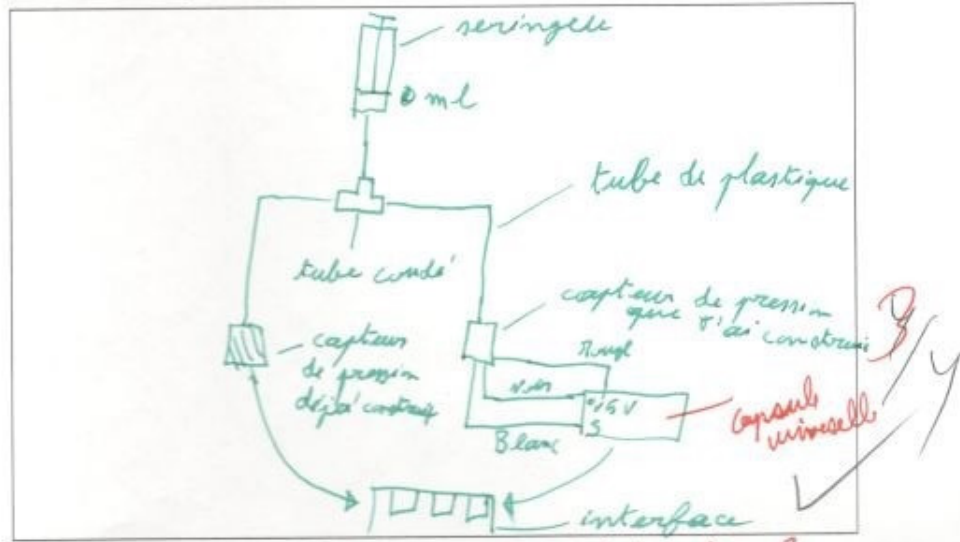 seringue
0 ml
tube de plastique
tube coudé
capteur de pression
que j'ai construis
capteur
de pression
déjà construis
Rouge
noir
5V
S
Blanc
capsule
universelle
interface
3/4